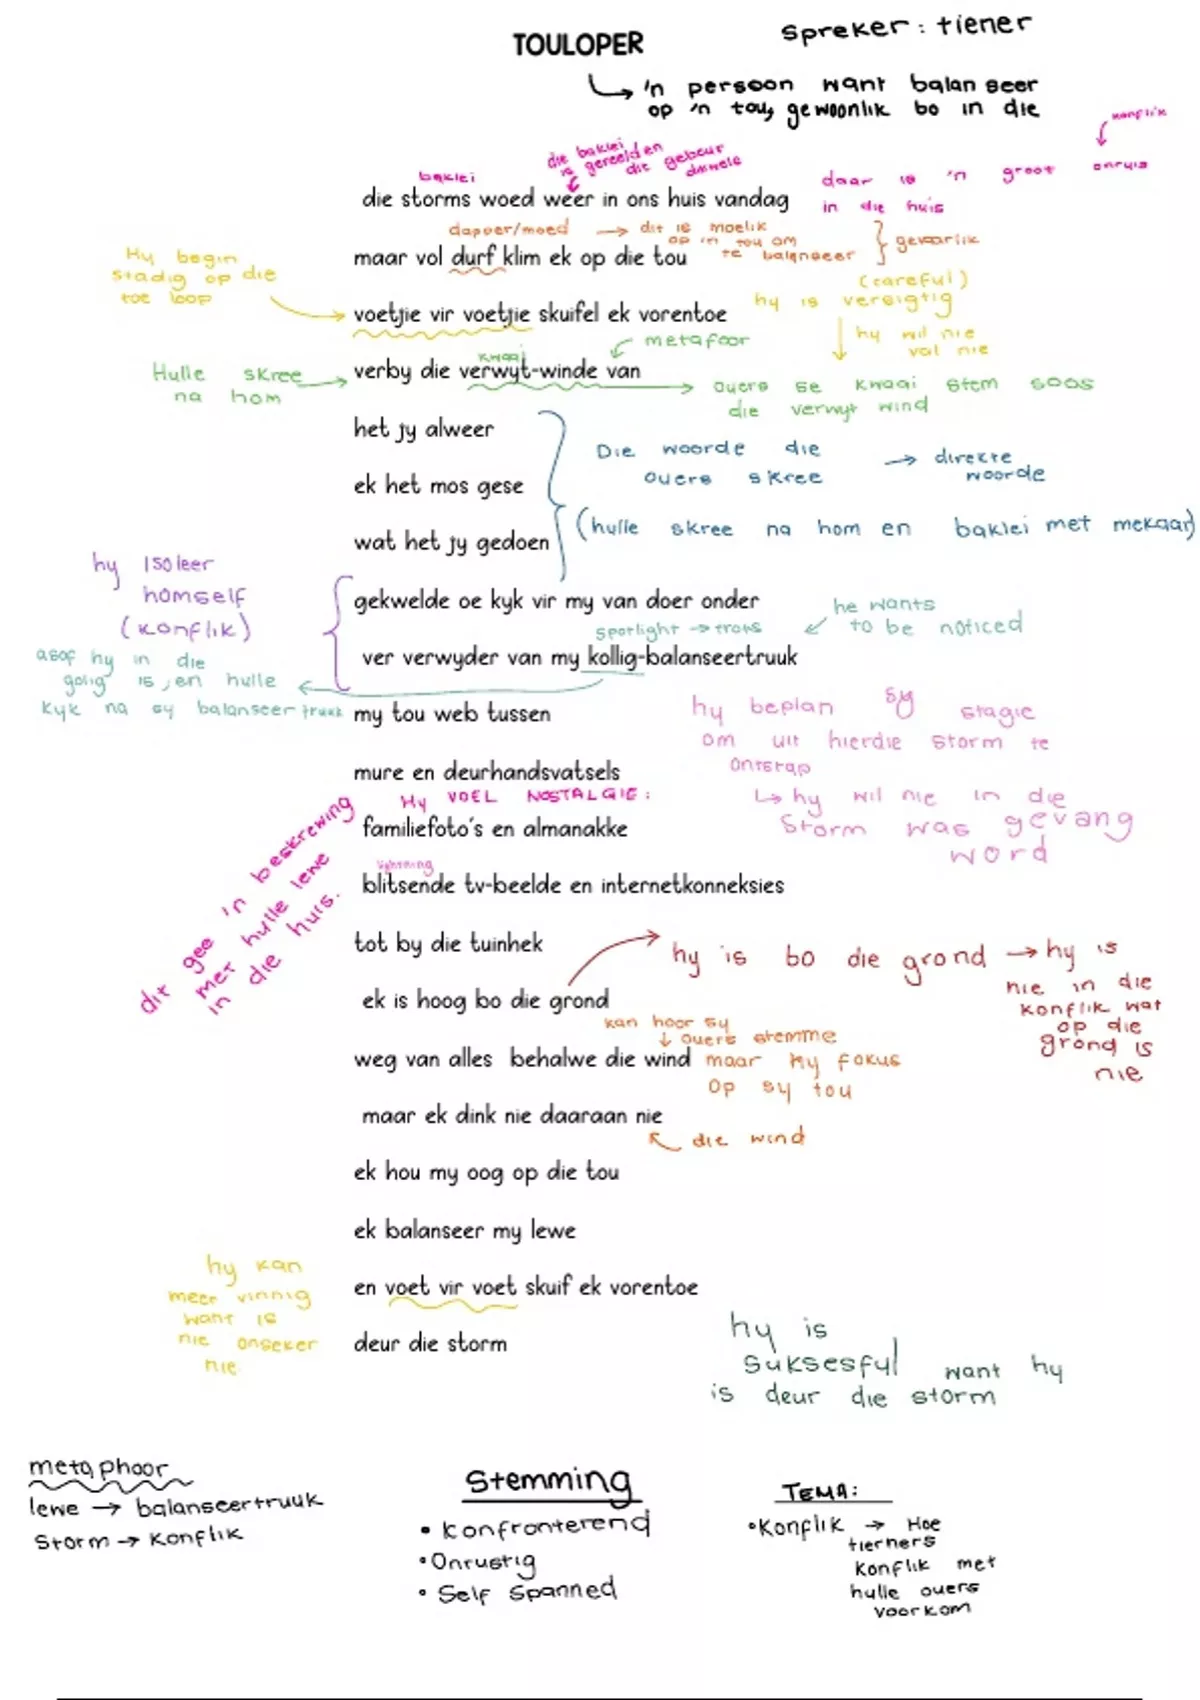 TOULOPER
spreker: tiener
'n persoon want balanseer
op 'n tou, gewoonlik bo in die
konflik
die baklei
is gereeld en
die gebeur
baklei
daar is 'n groot onruis
in die huis
die storms woed weer in ons huis vandag
dapper/moed → dit is moelik
op 'n tou om
te balanseer
gevaarlik
maar vol durf klim ek op die tou
Hy begin
stadig op die
toe loop
(careful)
hy is versigtig
voetjie vir voetjie skuifel ek vorentoe
hy wil nie
val nie
metafoor
kwaai
Hulle skree
na hom
verby die verwyt-winde van
ouers se kwaai stem soos
die verwyt wind
het jy alweer
Die woorde die
ouers skree
→ direkte
woorde
ek het mos gese
(hulle skree na hom en baklei met mekaar)
wat het jy gedoen
hy isoleer
homself
(konflik)
gekwelde oe kyk vir my van doer onder
he wants
to be noticed
spotlight → trots
asof hy in die
golig is, en hulle
kyk na sy balanseertruuk
ver verwyder van my kollig-balanseertruuk
my tou web tussen
hy beplan sy stagie
om uit hierdie storm te
ontstap
↳ hy wil nie in die
storm was gevang
word
mure en deurhandsvatsels
Hy VOEL NOSTALGIE:
familiefoto's en almanakke
dit gee 'n beskrewing
met hulle lewe
in die huis.
lightning
blitsende tv-beelde en internetkonneksies
tot by die tuinhek
hy is bo die grond → hy is
nie in die
konflik wat
op die
grond is
nie
ek is hoog bo die grond
kan hoor sy
↓ ouers stemme
weg van alles behalwe die wind
maar hy fokus
op sy tou
maar ek dink nie daaraan nie
die wind
ek hou my oog op die tou
ek balanseer my lewe
hy kan
meer vinnig
want is
nie onseker
nie
en voet vir voet skuif ek vorentoe
deur die storm
hy is
suksesful want hy
is deur die storm
metaphoor
lewe → balanseertruuk
Storm → Konflik
Stemming
• Konfronterend
• Onrustig
• Self Spanned
TEMA:
•Konflik → Hoe
tierners
konflik met
hulle ouers
voorkom